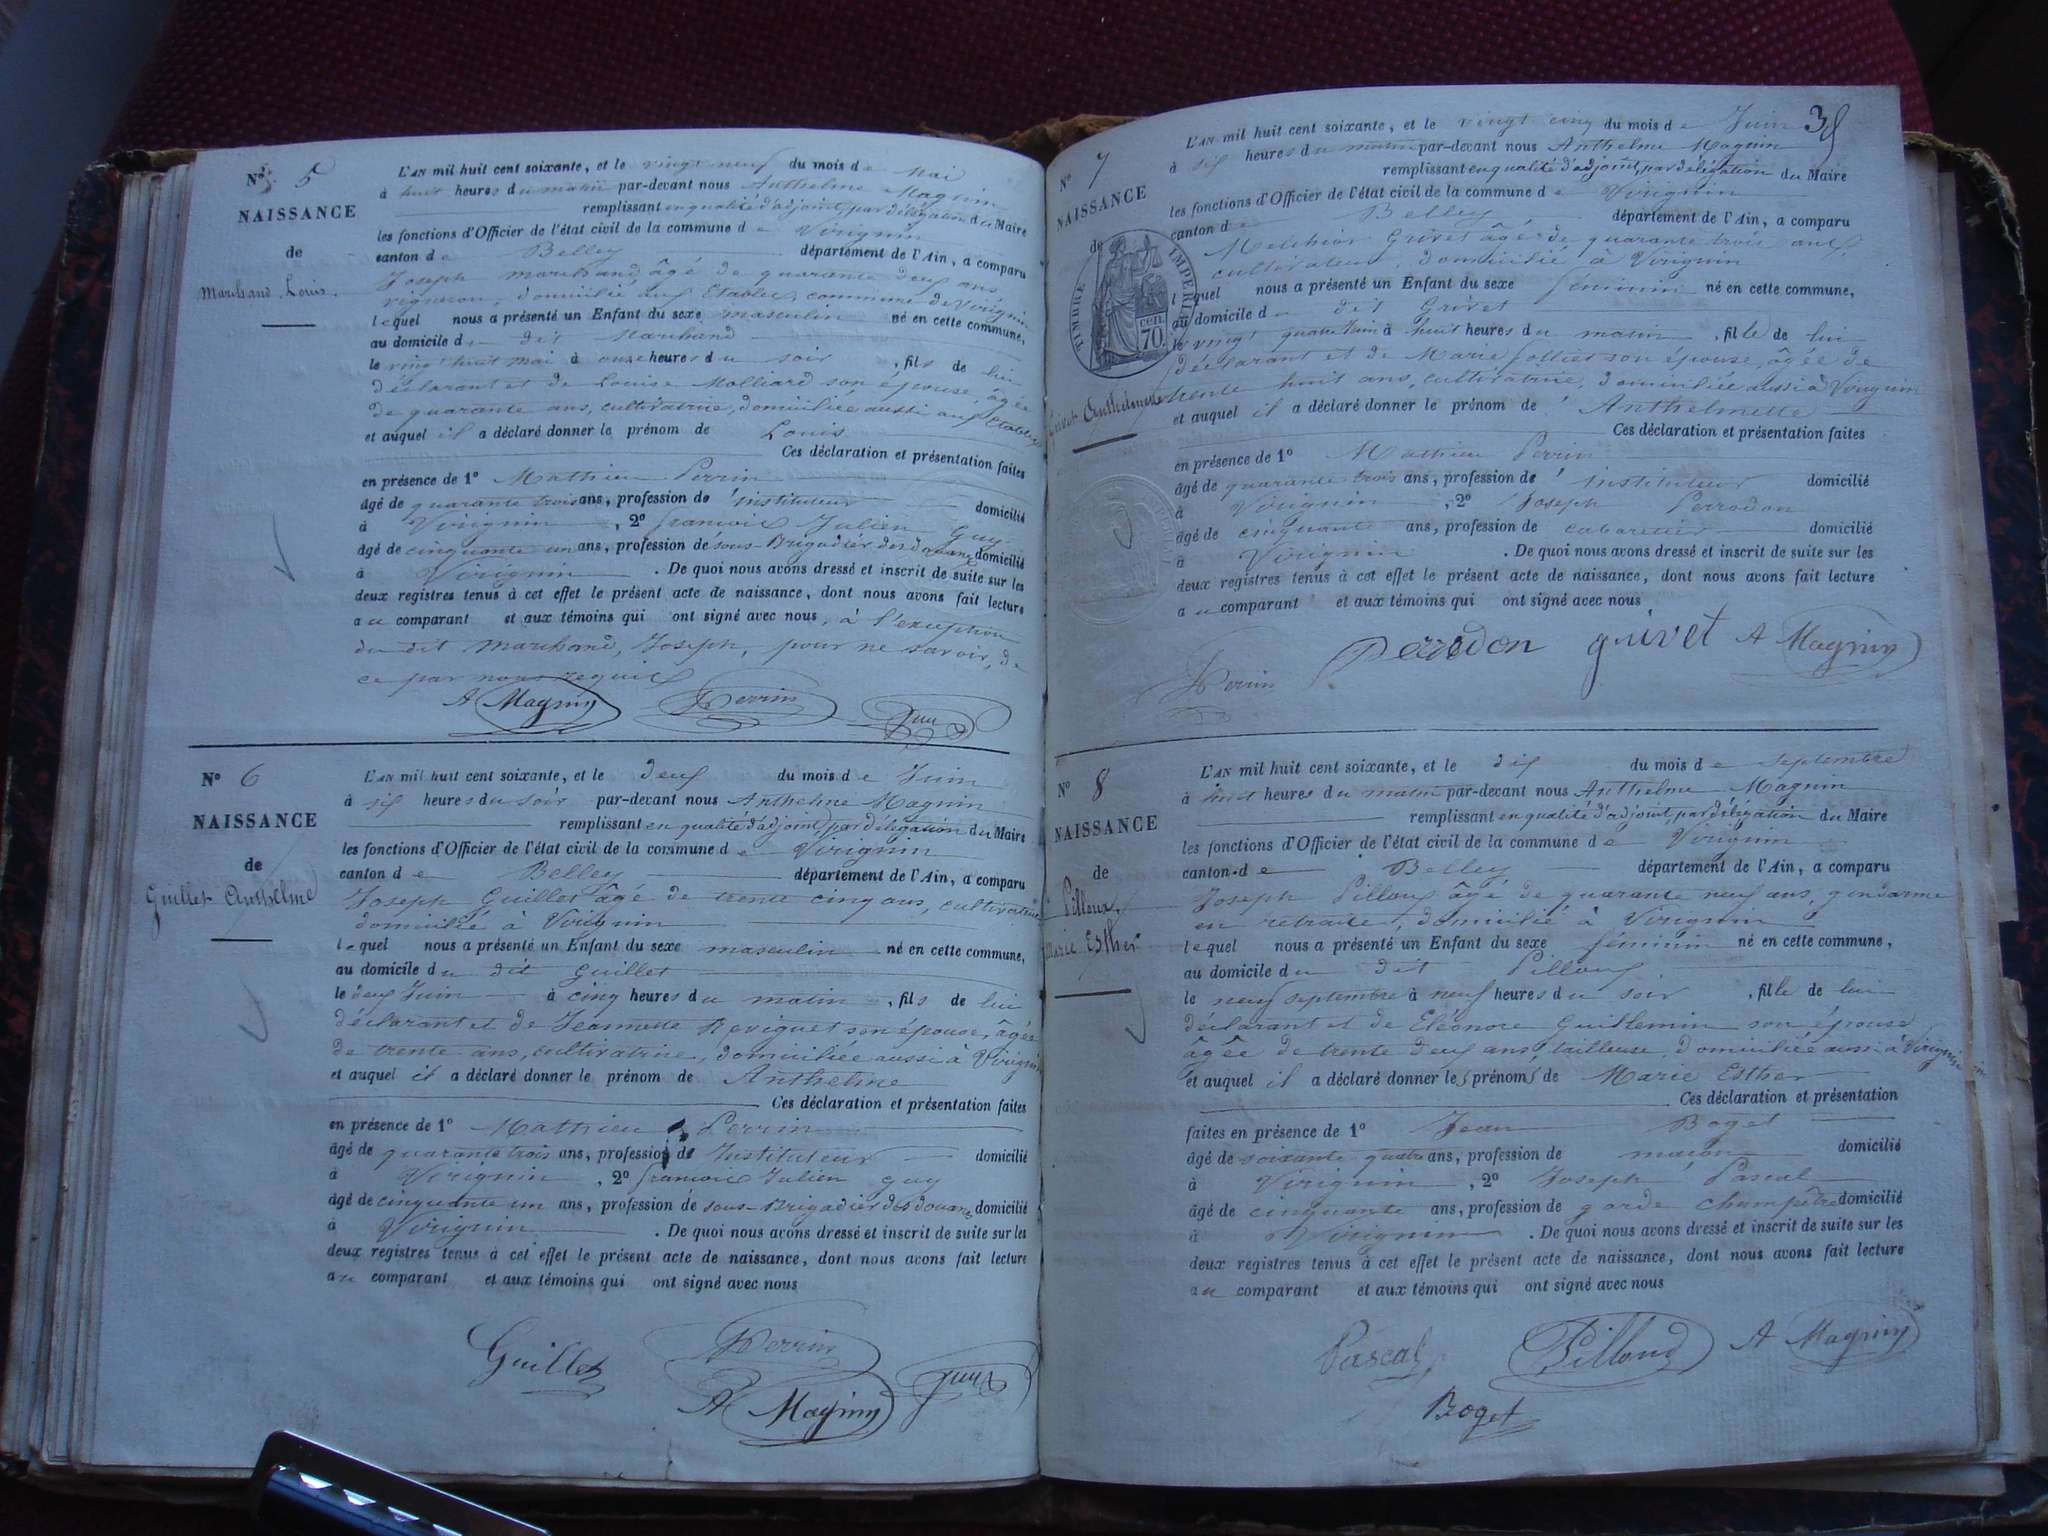 N° 5
NAISSANCE
de
Marchand Louis.
L'AN mil huit cent soixante, et le vingt neuf du mois de Mai
à huit heures du matin par-devant nous Anthelme Magnin
remplissant en qualité d'adjoint, par délégation du Maire
les fonctions d'Officier de l'état civil de la commune de Virignin
canton de Belley département de l'Ain, a comparu
Joseph marchand âgé de quarante deux ans,
vigneron, domicilié aux Etables, commune de Virignin
lequel nous a présenté un Enfant du sexe masculin né en cette commune,
au domicile du dit Marchand
le vingt huit mai à onze heures du soir, fils de lui
déclarant et de Louise Molliard son épouse, âgée
de quarante ans, cultivatrice, domiciliée aussi aux Etables
et auquel il a déclaré donner le prénom de Louis
Ces déclaration et présentation faites
en présence de 1° Mathieu Perrin
âgé de quarante trois ans, profession d'instituteur domicilié
à Virignin, 2° françois Julien Guy
âgé de cinquante un ans, profession de sous-Brigadier des douanes domicilié
à Virignin. De quoi nous avons dressé et inscrit de suite sur les
deux registres tenus à cet effet le présent acte de naissance, dont nous avons fait lecture
au comparant et aux témoins qui ont signé avec nous, à l'exception
du dit marchand, Joseph, pour ne savoir, de
ce par nous requis
A Magnin Perrin Guy
N° 6
NAISSANCE
de
Guillet Anthelme
L'AN mil huit cent soixante, et le deux du mois de Juin
à six heures du soir par-devant nous Anthelme Magnin
remplissant en qualité d'adjoint, par délégation du Maire
les fonctions d'Officier de l'état civil de la commune de Virignin
canton de Belley département de l'Ain, a comparu
Joseph Guillet âgé de trente cinq ans, cultivateur
domicilié à Virignin
lequel nous a présenté un Enfant du sexe masculin né en cette commune,
au domicile du dit Guillet
le deux Juin à cinq heures du matin, fils de lui
déclarant et de Jeannette Reviguet son épouse, âgée
de trente ans, cultivatrice, domiciliée aussi à Virignin
et auquel il a déclaré donner le prénom de Anthelme
Ces déclaration et présentation faites
en présence de 1° Mathieu Perrin
âgé de quarante trois ans, profession d'Instituteur domicilié
à Virignin, 2° françois Julien guy
âgé de cinquante un ans, profession de sous-Brigadier des douanes domicilié
à Virignin. De quoi nous avons dressé et inscrit de suite sur les
deux registres tenus à cet effet le présent acte de naissance, dont nous avons fait lecture
au comparant et aux témoins qui ont signé avec nous
Guillet Perrin Guy
A Magnin
38
N° 7
NAISSANCE
de
Grivet Anthelmette
TIMBRE IMPERIAL
CEN. 70.
L'AN mil huit cent soixante, et le vingt cinq du mois de Juin
à six heures du matin par-devant nous Anthelme Magnin
remplissant en qualité d'adjoint, par délégation du Maire
les fonctions d'Officier de l'état civil de la commune de Virignin
canton de Belley département de l'Ain, a comparu
Melchior Grivet âgé de quarante trois ans,
cultivateur, domicilié à Virignin
lequel nous a présenté un Enfant du sexe féminin né en cette commune,
au domicile du dit Grivet
le vingt quatre Juin à huit heures du matin, fille de lui
déclarant et de Marie folliet son épouse, âgée de
trente huit ans, cultivatrice, domiciliée aussi à Virignin
et auquel il a déclaré donner le prénom de Anthelmette
Ces déclaration et présentation faites
en présence de 1° Mathieu Perrin
âgé de quarante trois ans, profession d'instituteur domicilié
à Virignin, 2° Joseph Perrodon
âgé de cinquante ans, profession de cabaretier domicilié
à Virignin. De quoi nous avons dressé et inscrit de suite sur les
deux registres tenus à cet effet le présent acte de naissance, dont nous avons fait lecture
au comparant et aux témoins qui ont signé avec nous
Perrin Perrodon grivet A Magnin
N° 8
NAISSANCE
de
Pilloux,
marie Esther
L'AN mil huit cent soixante, et le dix du mois de septembre
à huit heures du matin par-devant nous Anthelme Magnin
remplissant en qualité d'adjoint, par délégation du Maire
les fonctions d'Officier de l'état civil de la commune de Virignin
canton de Belley département de l'Ain, a comparu
Joseph Pilloux âgé de quarante neuf ans, gendarme
en retraite, domicilié à Virignin
lequel nous a présenté un Enfant du sexe féminin né en cette commune,
au domicile du dit Pilloux
le neuf septembre à neuf heures du soir, fille de lui
déclarant et de Eléonore Guillemin son épouse
âgée de trente deux ans, tailleuse, domiciliée aussi à Virignin
et auquel il a déclaré donner les prénoms de Marie Esther
Ces déclaration et présentation
faites en présence de 1° Jean Boget
âgé de soixante quatre ans, profession de maçon domicilié
à Virignin, 2° Joseph Pascal
âgé de cinquante ans, profession de garde champêtre domicilié
à Virignin. De quoi nous avons dressé et inscrit de suite sur les
deux registres tenus à cet effet le présent acte de naissance, dont nous avons fait lecture
au comparant et aux témoins qui ont signé avec nous
Pascal Pilloud A Magnin
Boget